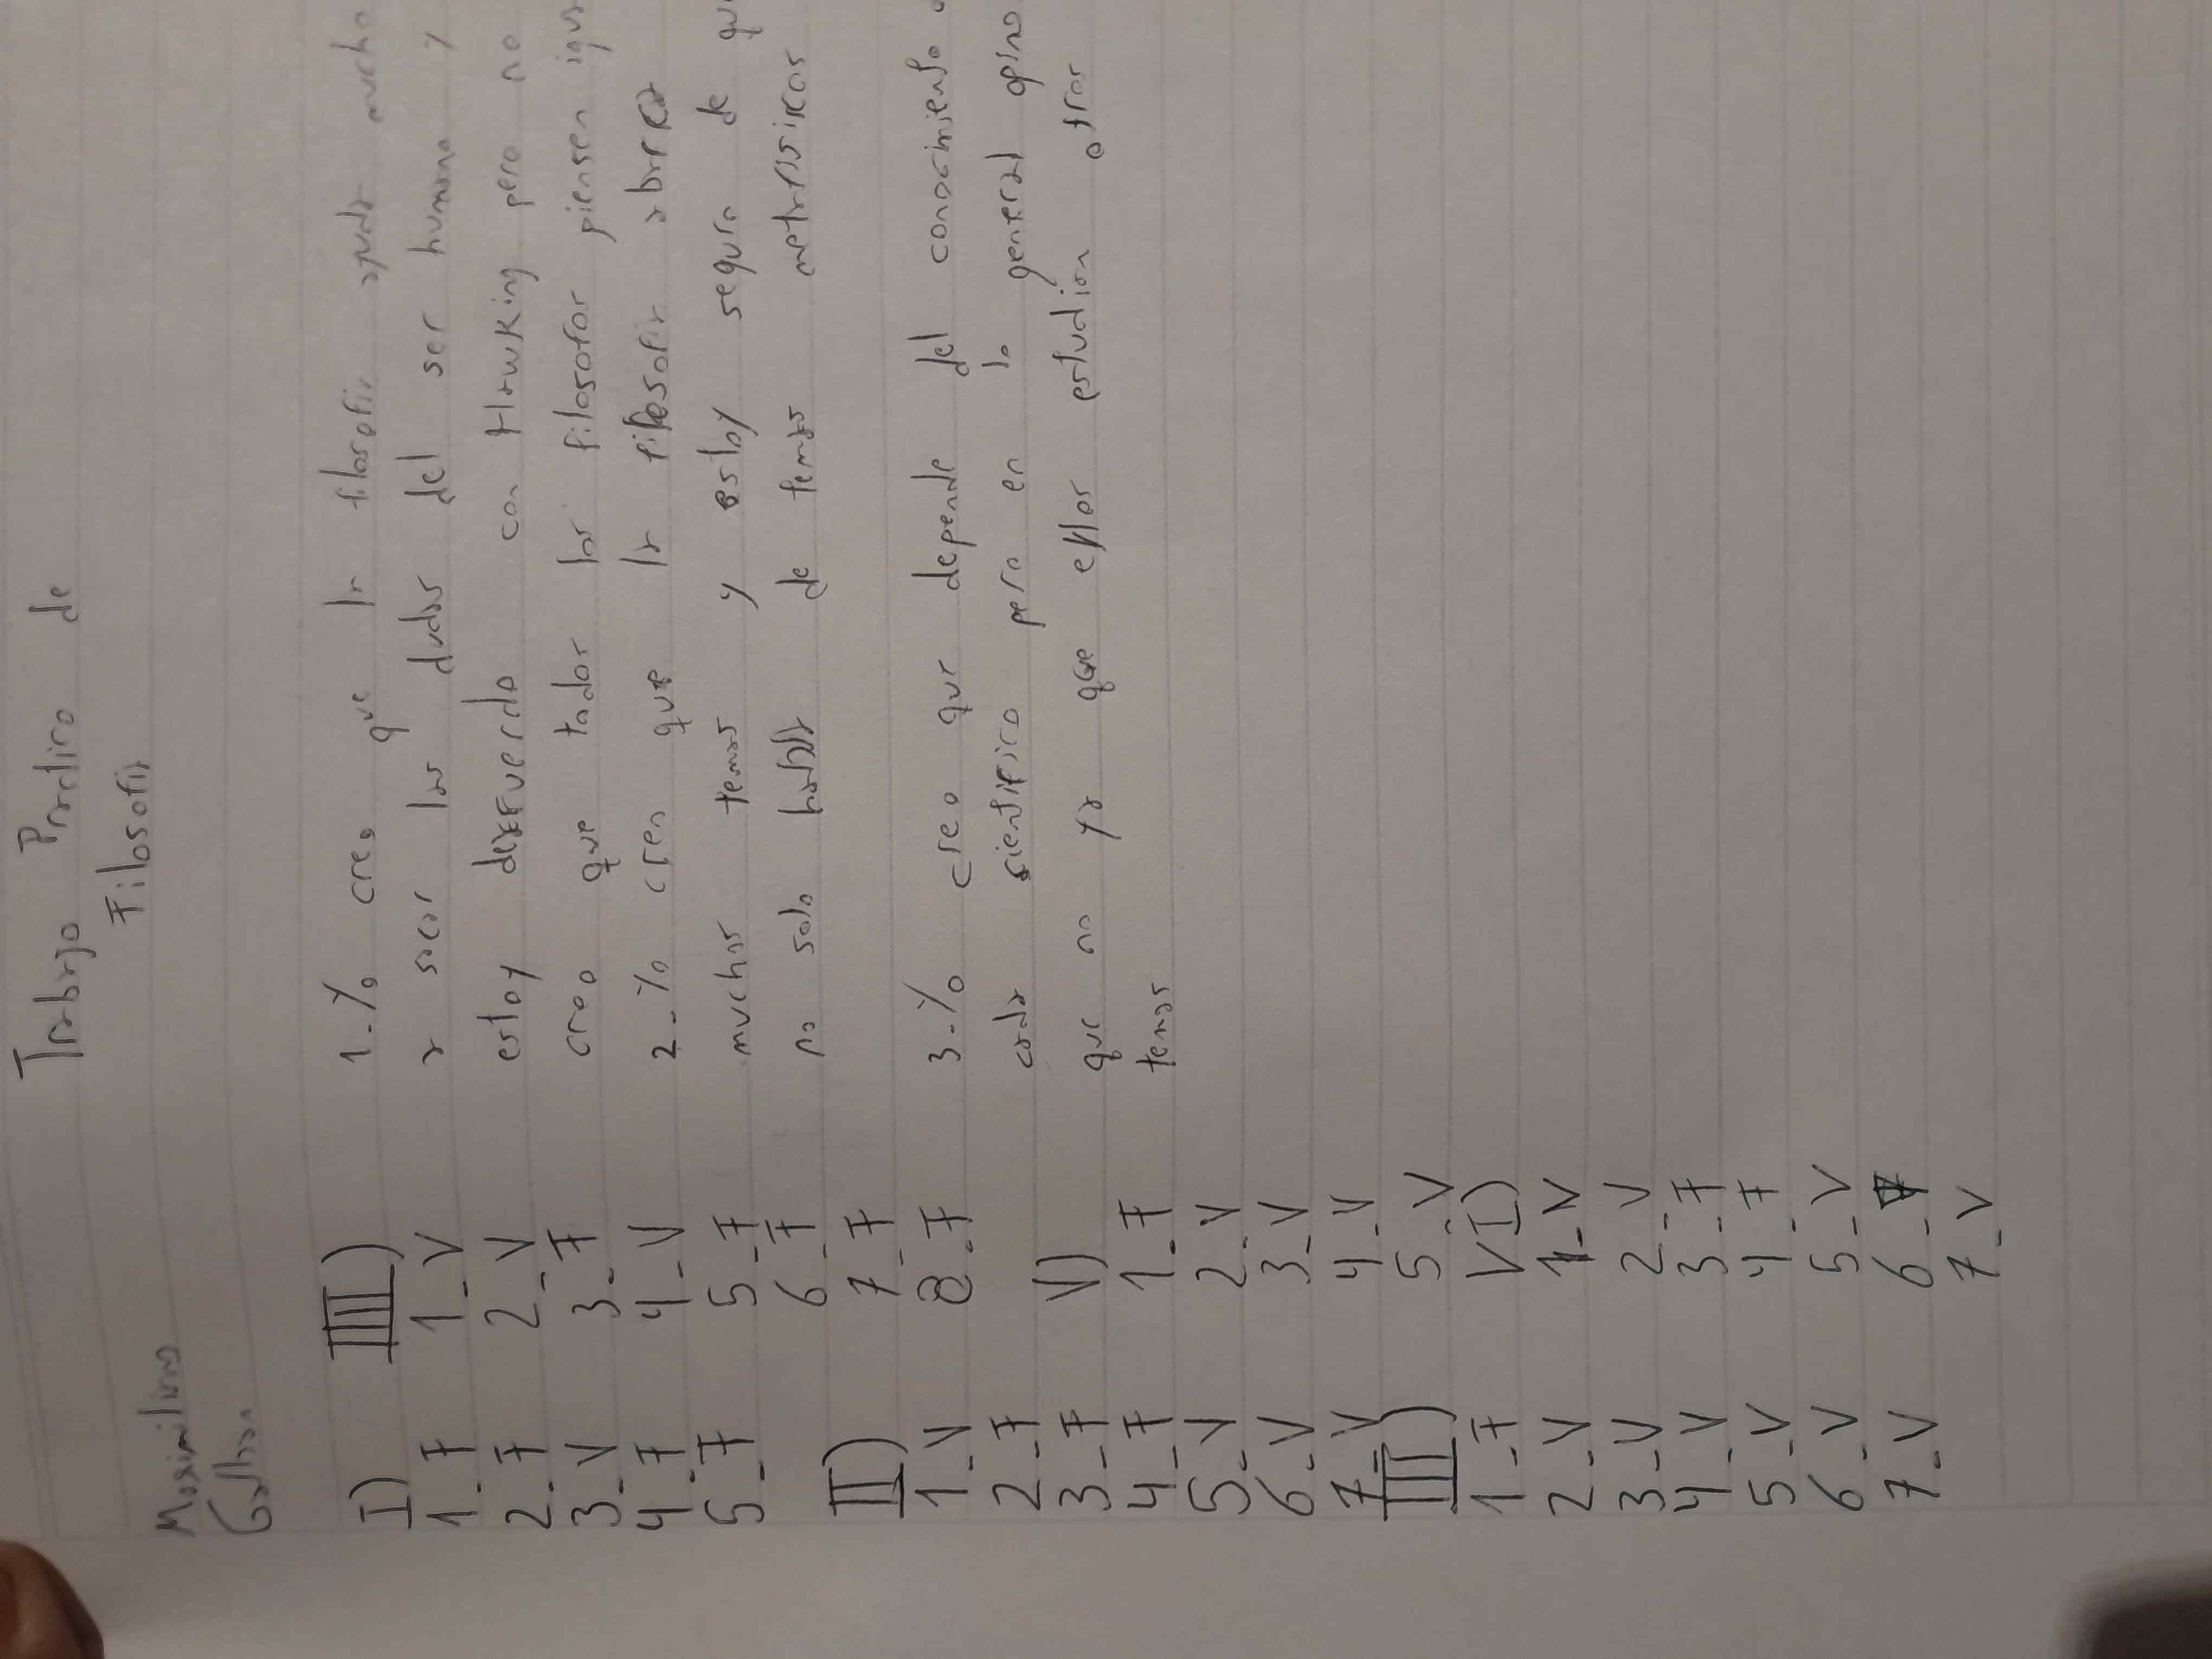 Trabajo Practico de
Filosofia
Maximiliano
I)
1_F
2_F
3_V
4_F
5_F
II)
1_V
2_F
3_F
4_F
5_V
6_V
7_V
III)
1_F
2_V
3_V
4_V
5_V
6_V
7_V
III)
1_V
2_V
3_F
4_V
5_F
6_F
7_F
8_F
V)
1_F
2_V
3_V
4_V
5_V
VI)
1_V
2_V
3_F
4_F
5_V
6_
7_V
1-% creo que la filosofia ayuda mucho
a sacar las dudas del ser humano y
estoy desacuerdo con Hawking pero no
creo que todos los filosofos piensen
2-% creo que la filosofia abarca
muchos temas y estoy seguro de
no solo habla de temas metafisicos
3-% creo que depende del conocimiento
cada cientifico pero en lo general opino
que no ya que ellos estudian otros
temas